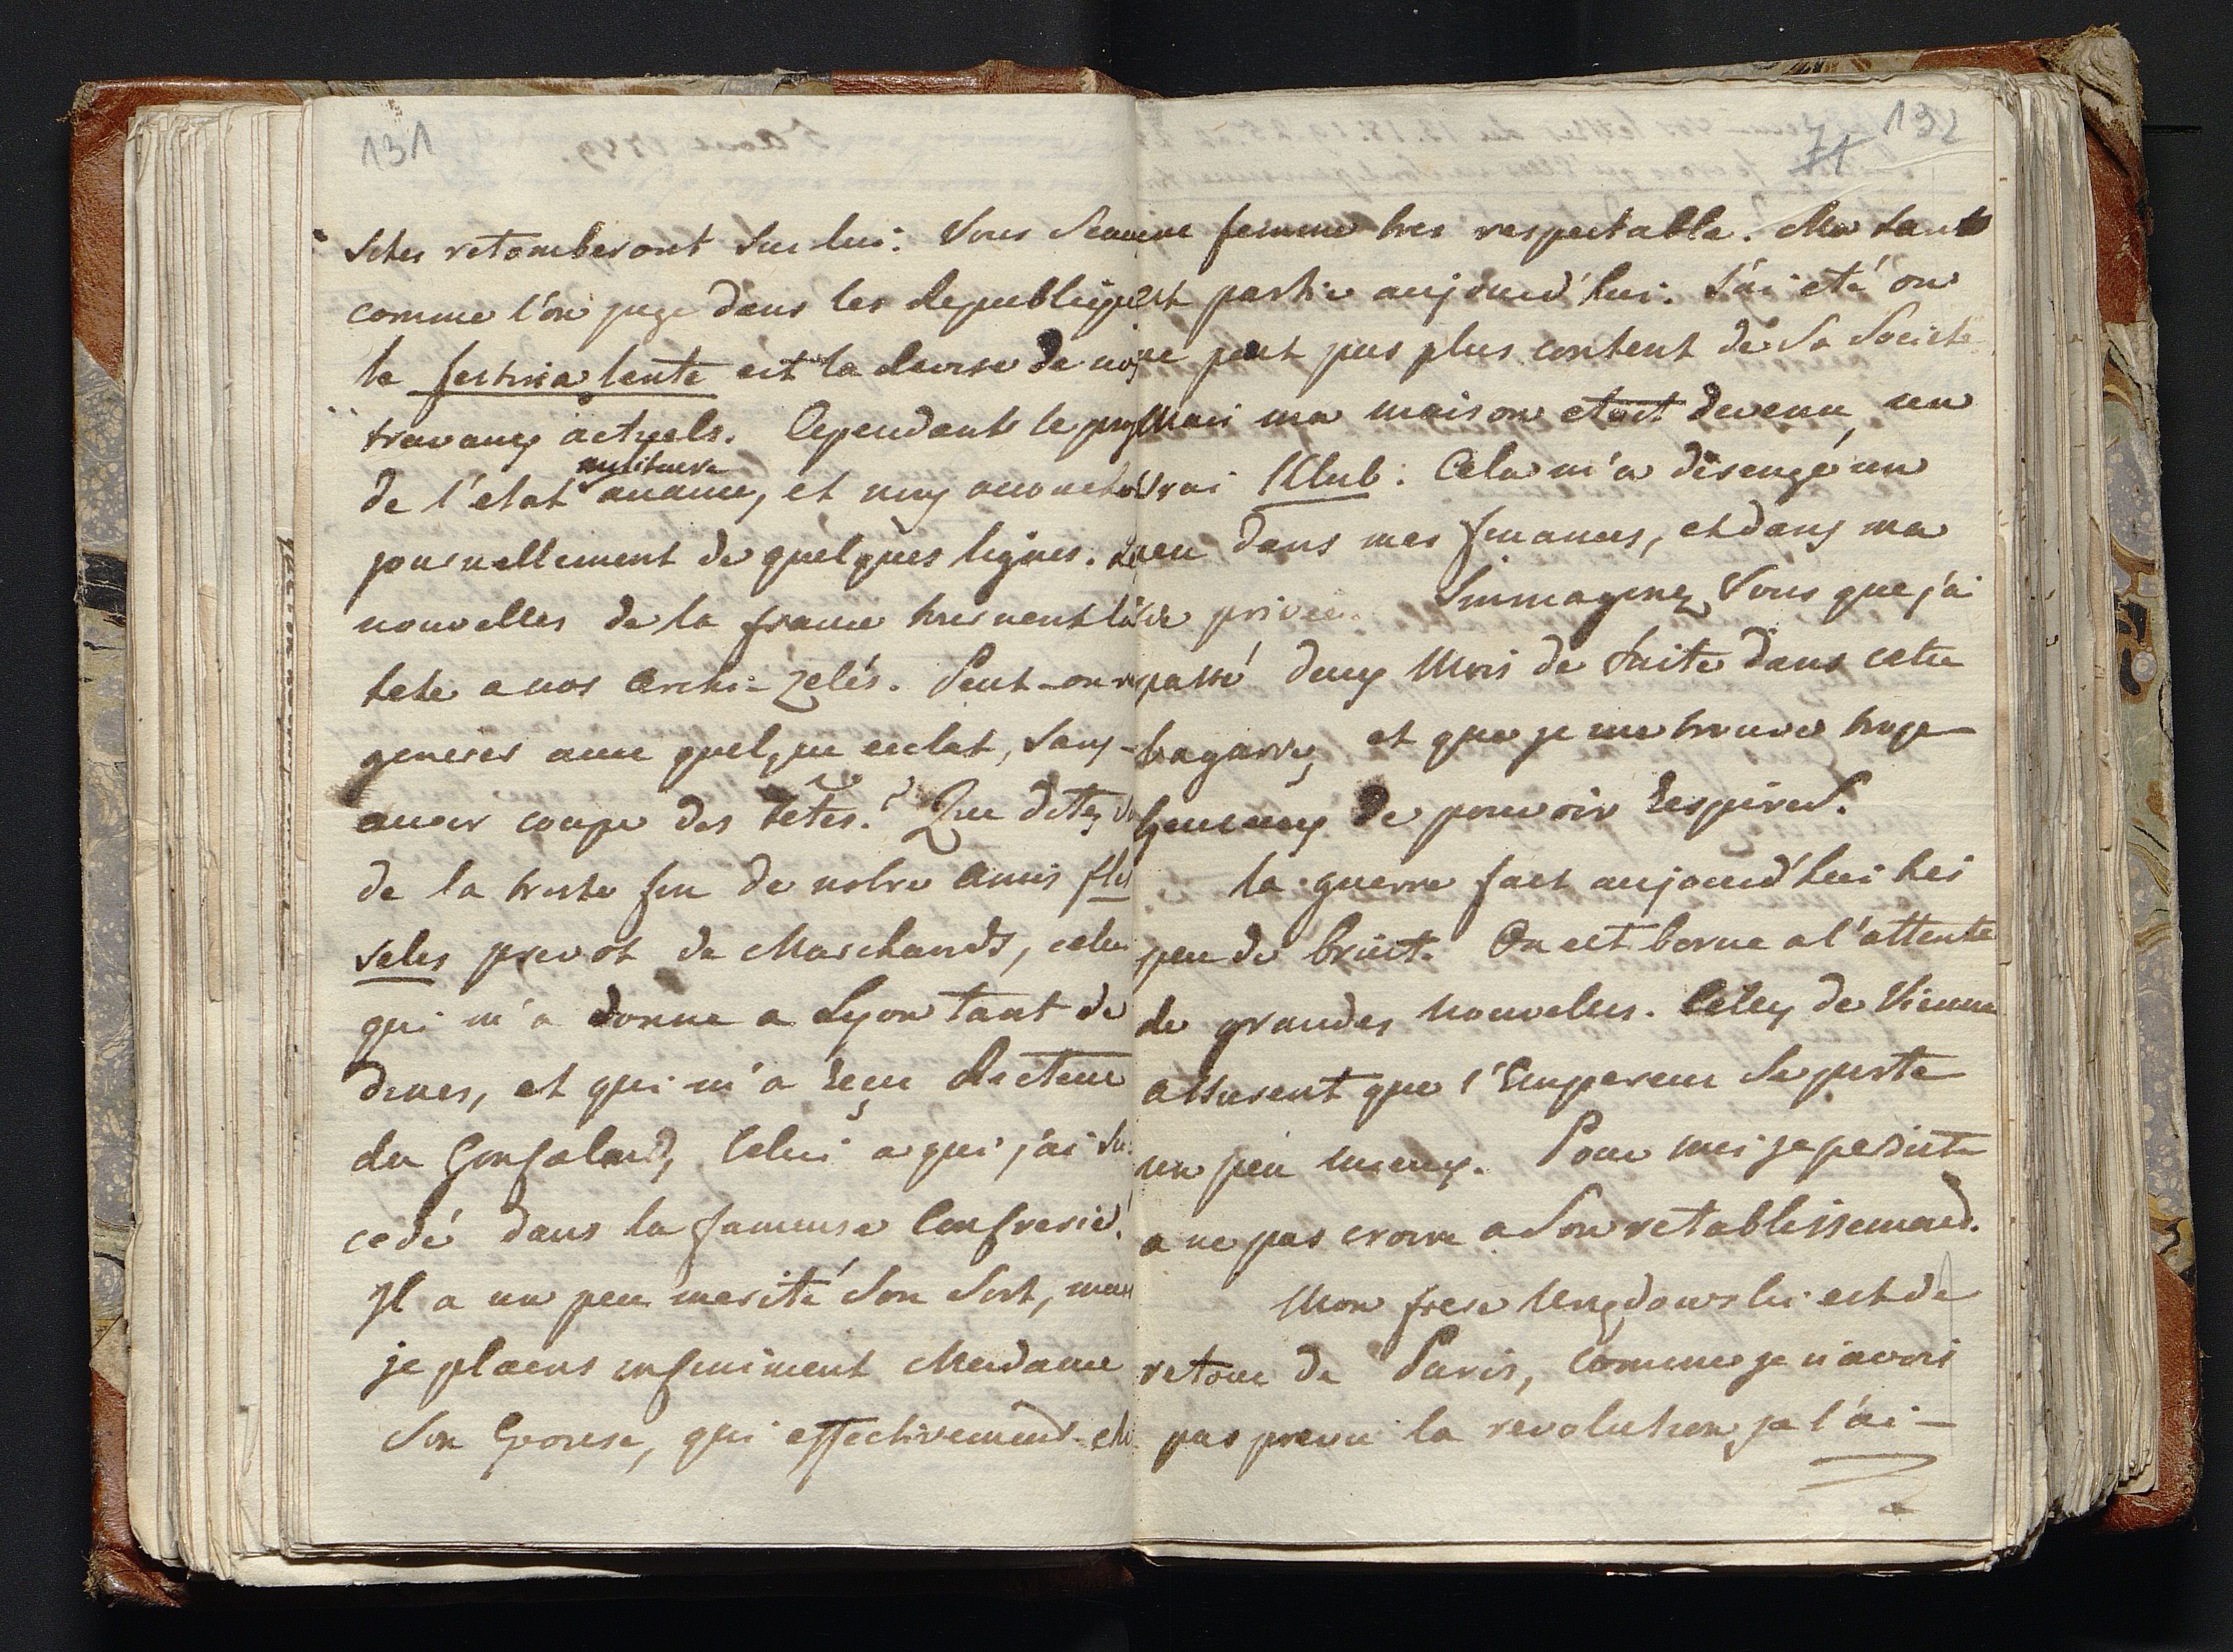 131
sches retomberont sur lui. Vous
comme l'on juge dans les Republiq
le festina lente est la devise de
travaux actuels. Cependant le
militaire
de l'etat avance, et
journellement de quelques lignes.
nouvelles de la france tournent la
tete a nos Archi-zelés. Peut-on
generer avec quelque eclat, sans-
avoir coupe des têtes? Que dites
de la triste fin de notre Amis fles
seles prevot de Marchands, celui
qui m'a donne a Lyon tant de
diners, et qui m'a reçu Recteur
du Gonfalond, Celui a qui j'ai Su
cedé dans la fameuse Confrerie!
Il a un peu merité Son Sort, mais
je plains infiniment Madame
Son Epouse, qui effectivement est
71 132
une femme tres respectable. Ma tante
est partie aujourd'hui. J'ai eté on
ne peut pas plus content de Sa Societé
Mais ma maison etoit devenu, un
vrai Klub: Cela m'a désengé un
peu dans mes finances, et dans ma
vie privée. Immaginez Vous que j'ai
passé deux Mois de Suite dans cette
bagarre, et que je me trouve trop-
heureux de pouvoir Respirer.
la guerre fait aujourd'hui tres
peu de bruit. On est borne a l'attente
de grandes nouvelles. Celles de Vienne
assurent que l'Empereur Se porte
un peu mieux. Pour moi je persiste
a ne pas croire a Son retablissement.
Mon frere est de
retour de Paris, Comme je n'avois
pas prevu la revolution, je l'ai-